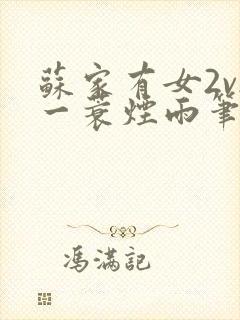 蘇家有女2v
一蓑煙雨筆
馮滿記